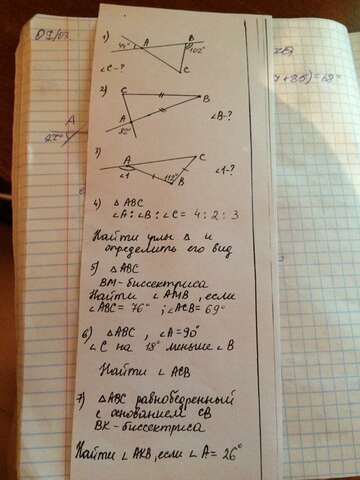 1)
A
B
102°
C
∠C-?
2)
C
B
A
∠B-?
3)
C
A
∠1
B
∠1-?
4) △ ABC
∠A : ∠B : ∠C = 4 : 2 : 3
Найти углы △ и
определить его вид
5) △ ABC
BM-биссектриса
Найти ∠ AMB, если
∠ABC = 76° ; ∠ACB = 69°
6) △ABC, ∠A=90°
∠C на 18° меньше ∠B
Найти ∠ ACB
7) △ABC равнобедренный
с основанием CB
BK-биссектриса
Найти ∠ AKB, если ∠ A = 26°
A